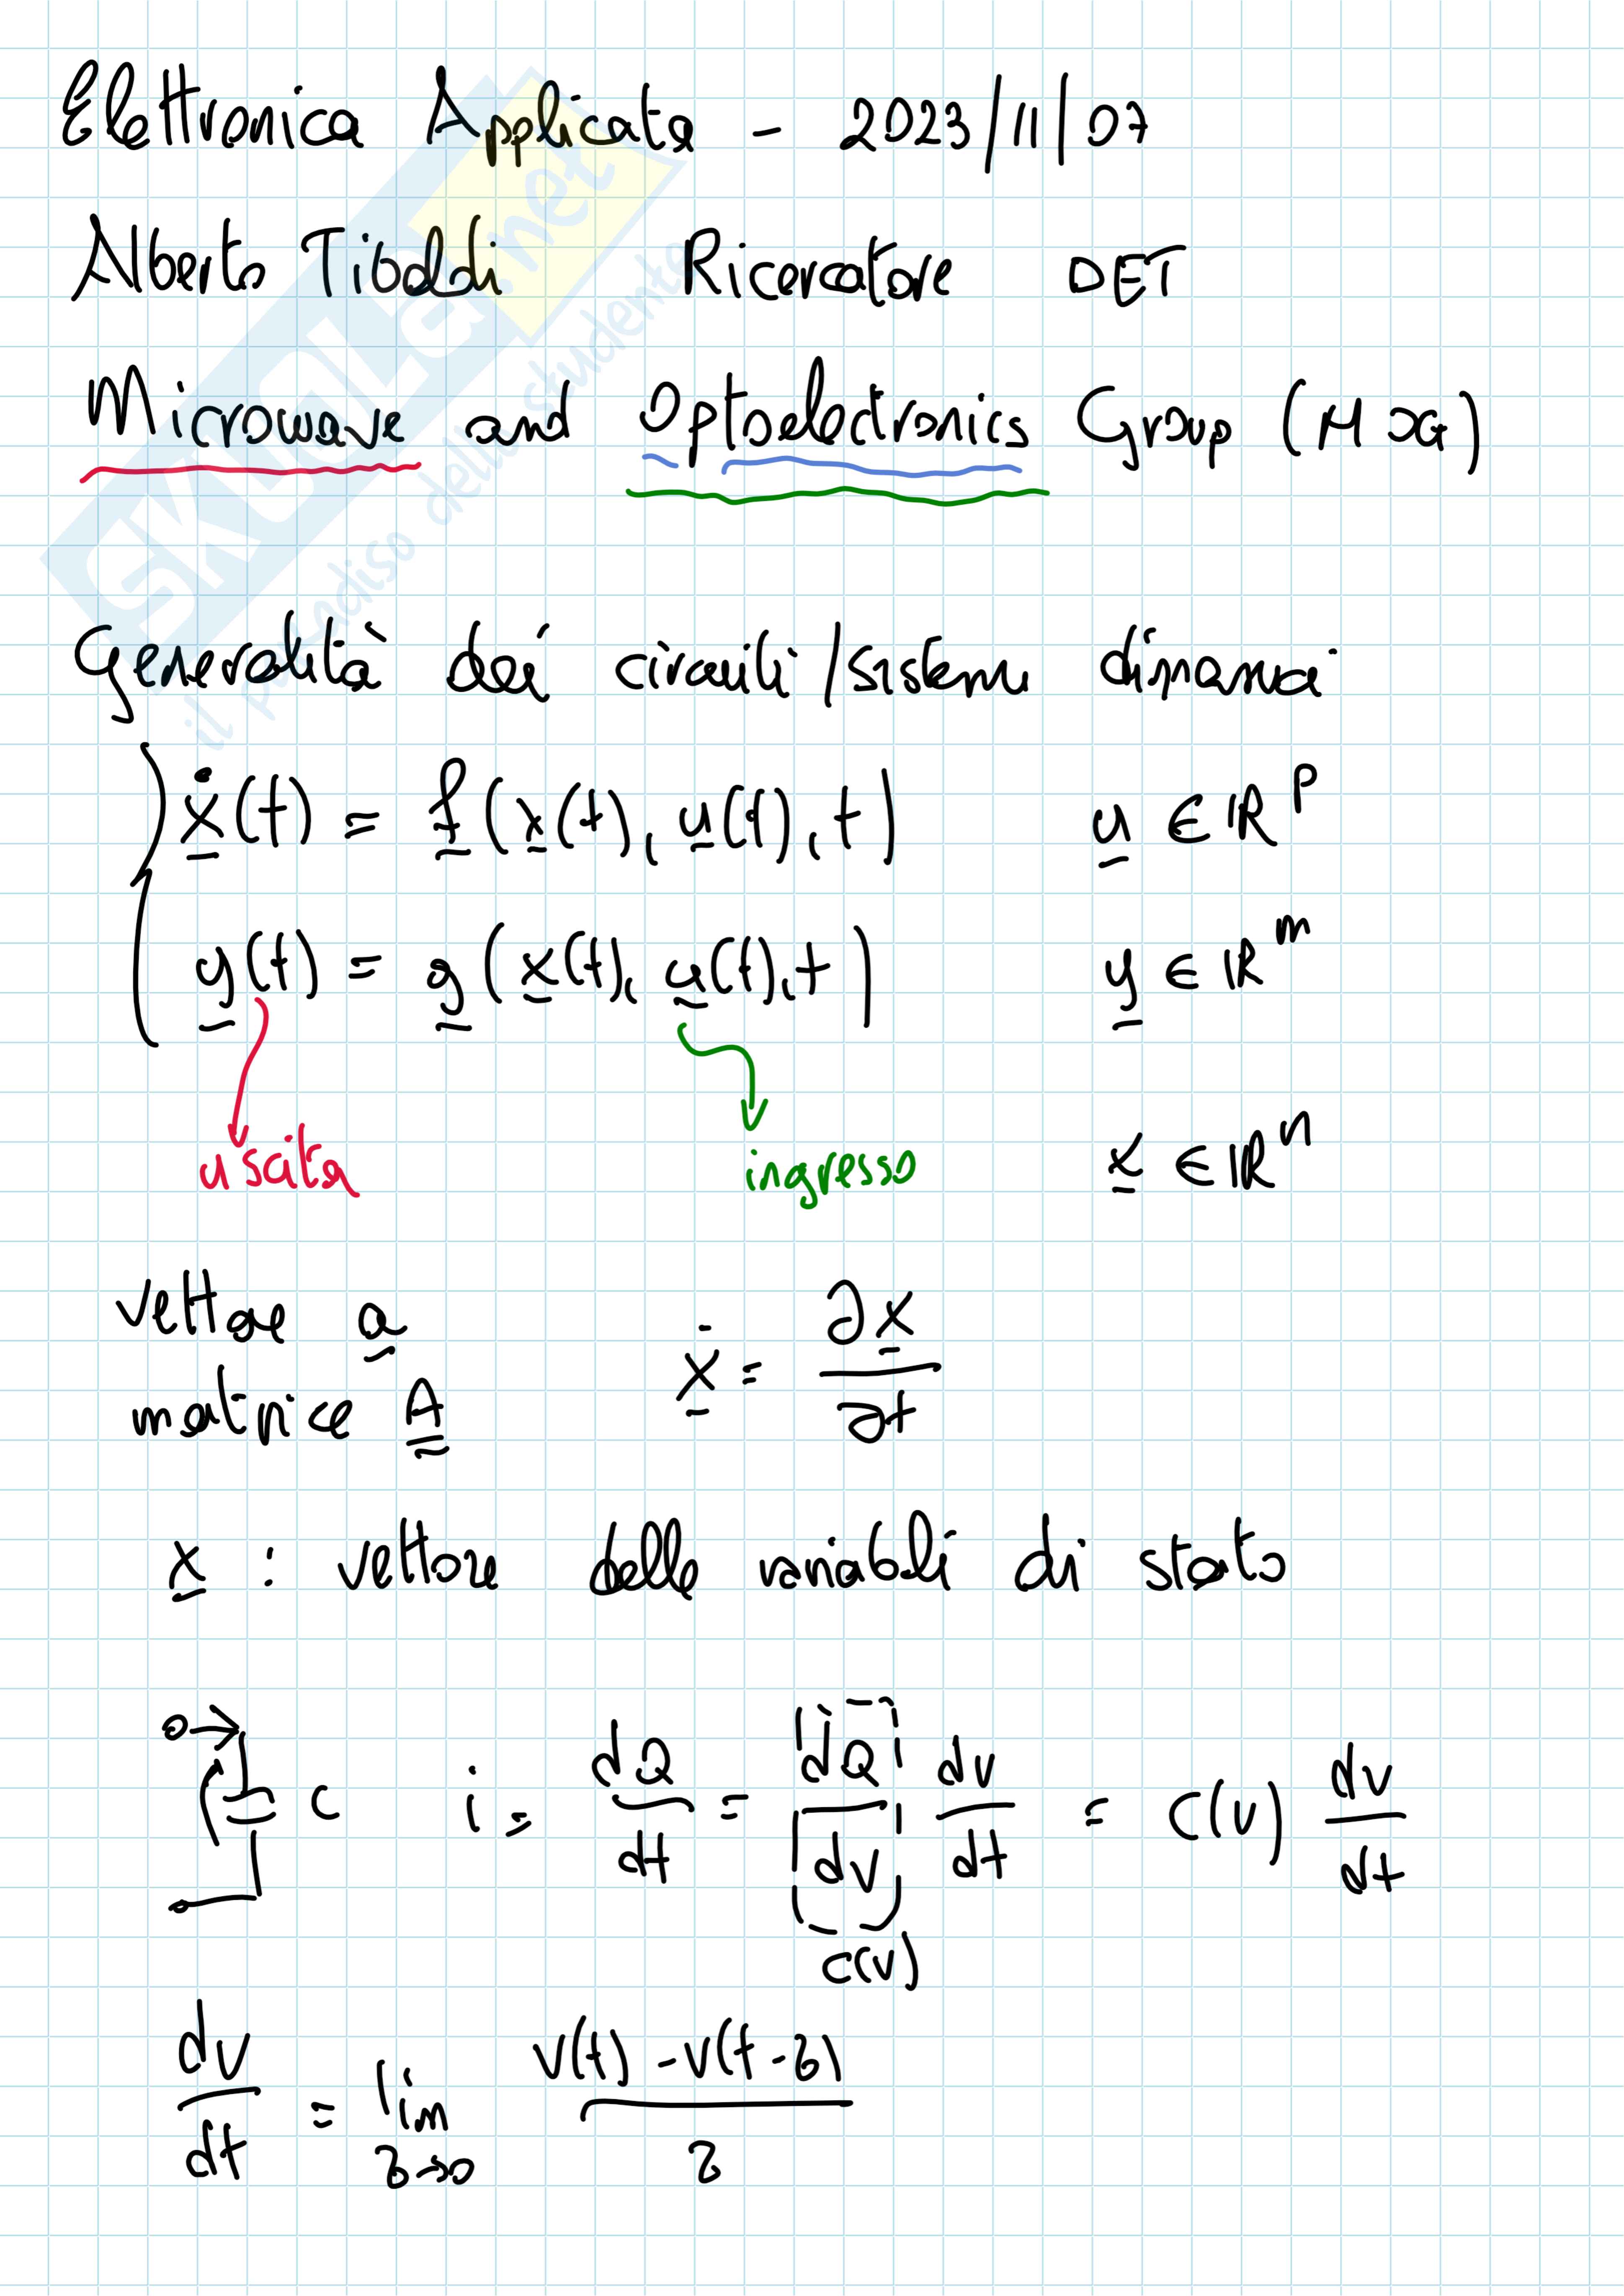 Elettronica Applicata - 2023/11/07
Alberto Tibaldi Ricercatore DET
Microwave and Optoelectronics Group (MOG)
Generalità dei circuiti/sistemi dinamici
ẋ(t) = f(x(t), u(t), t) u ∈ ℝ^p
y(t) = g(x(t), u(t), t) y ∈ ℝ^m
uscita ingresso x ∈ ℝ^n
vettore a
matrice A ẋ = ∂x/∂t
x : vettore delle variabili di stato
C i = dQ/dt = dQ/dv dv/dt = C(v) dv/dt
C(v)
dv/dt = lim τ→0 (v(t) - v(t-τ))/τ
SKUOLA.net
il paradiso dello studente